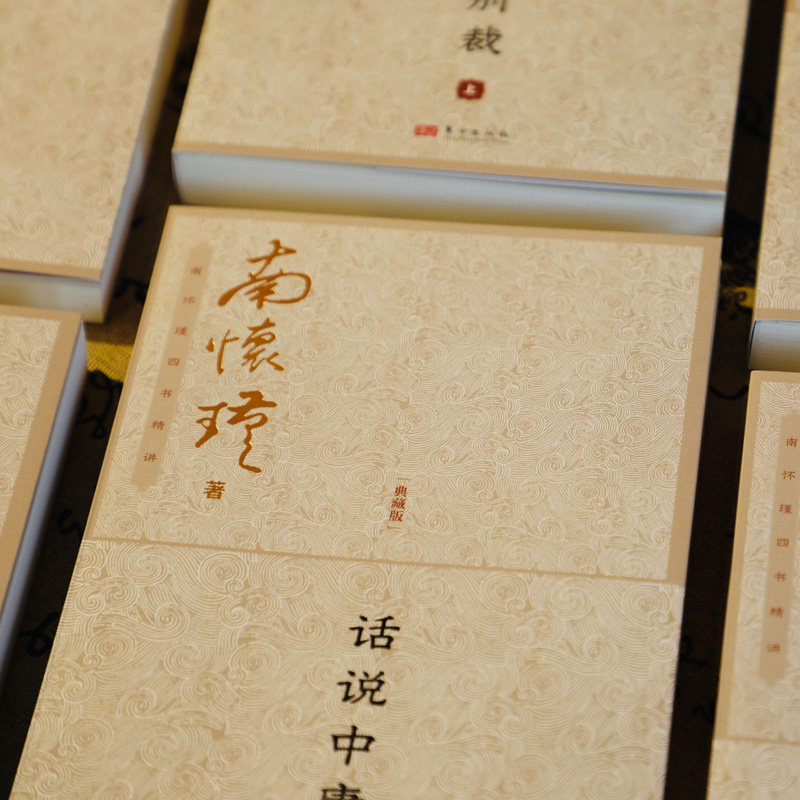 别裁
上
东方出版社
南怀瑾四书精讲
南懷瑾
著
典藏版
话说中庸
南怀瑾四书精讲